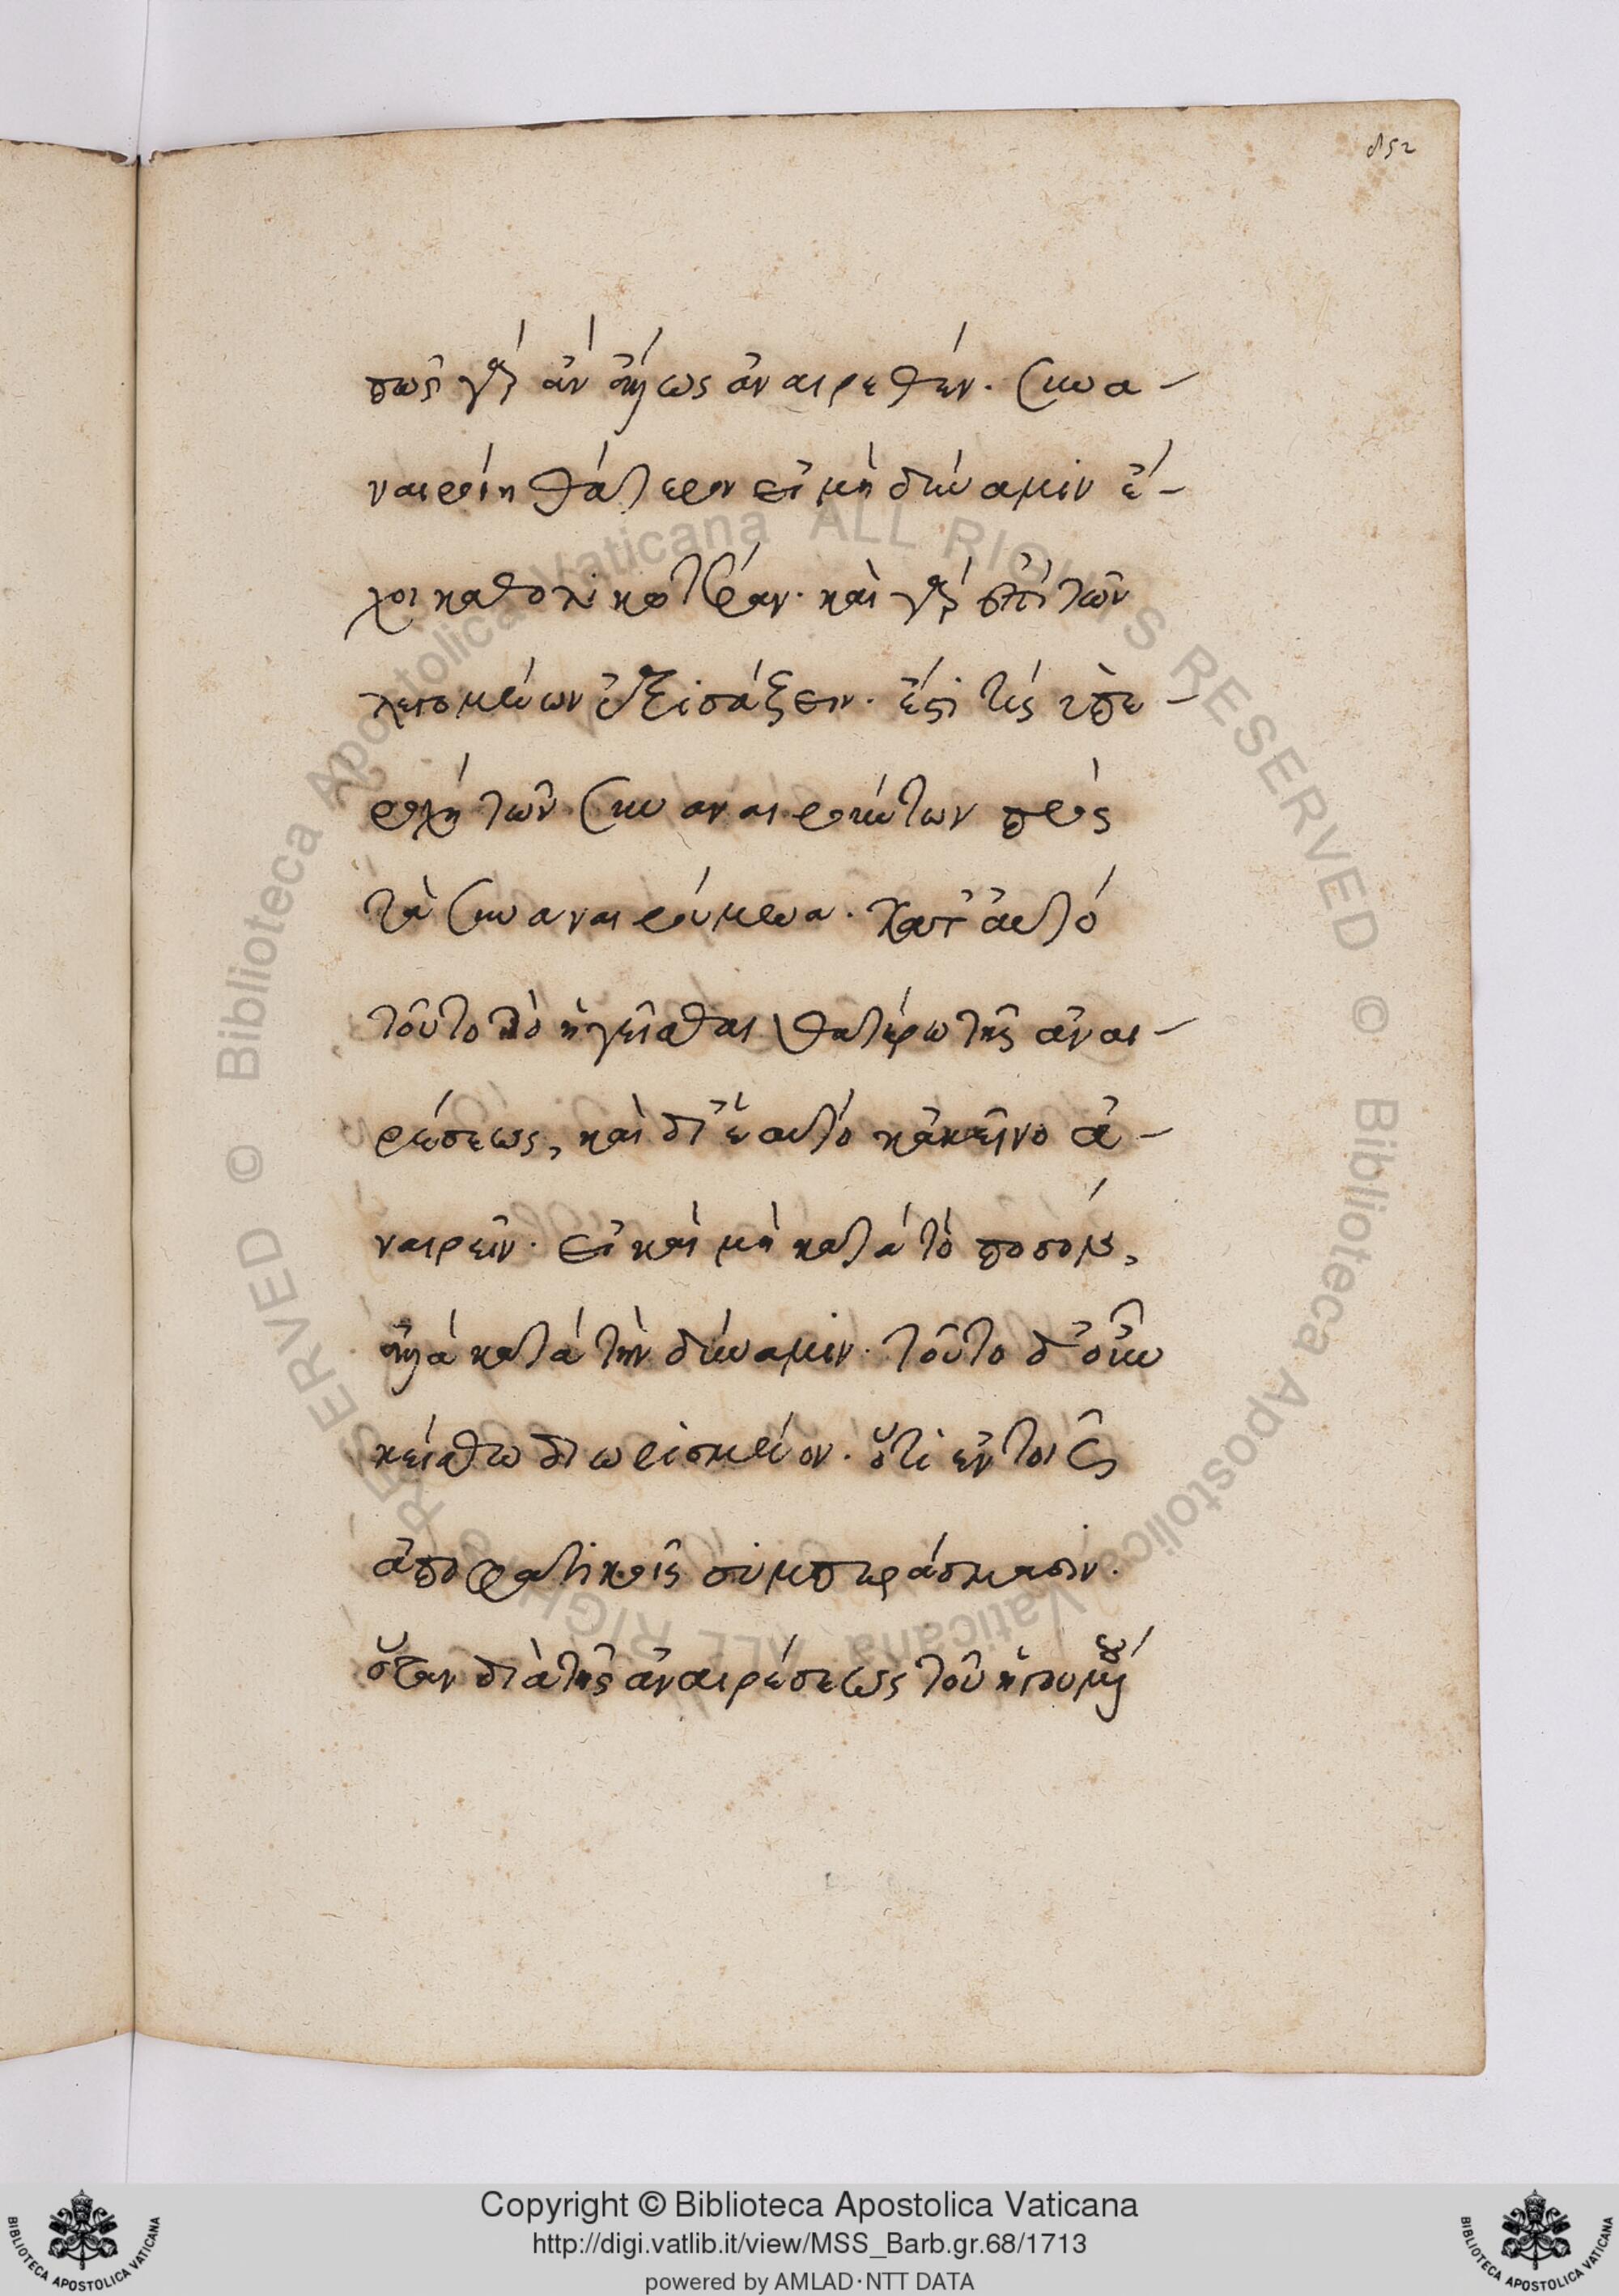 852
πῶς γὰρ ἂν ἄλλως ἀναιρεθέν. συνα-
ναιροίη θάτερον εἰ μὴ δύναμιν ἔ-
χοι καθολικωτέραν. καὶ γὰρ ἐπὶ τῶν
λεγομένων ἐξισάζειν. ἔστι τίς ὑπε-
ροχὴ τῶν συναναιρούντων πρὸς
τὰ συναναιρούμενα. κατ' αὐτὸ
τοῦτο τὸ ἡγεῖσθαι θατέρω τῆς ἀναι-
ρέσεως, καὶ δι' ἑαυτὸ κἀκεῖνο ἀ-
ναιρεῖν. εἰ καὶ μὴ κατὰ τὸ ποσὸν,
ἀλλὰ κατὰ τὴν δύναμιν. τοῦτο δ' οὖν
κείσθω διωρισμένον. ὅτι ἐν τοῖς
ἀποφατικοῖς συμπεράσμασιν.
ὅταν διὰ τῆς ἀναιρέσεως τοῦ ἡγουμένου
Copyright © Biblioteca Apostolica Vaticana
http://digi.vatlib.it/view/MSS_Barb.gr.68/1713
powered by AMLAD·NTT DATA
BIBLIOTECA APOSTOLICA VATICANA
BIBLIOTECA APOSTOLICA VATICANA
© Biblioteca Apostolica Vaticana ALL RIGHTS RESERVED
© Biblioteca Apostolica Vaticana ALL RIGHTS RESERVED